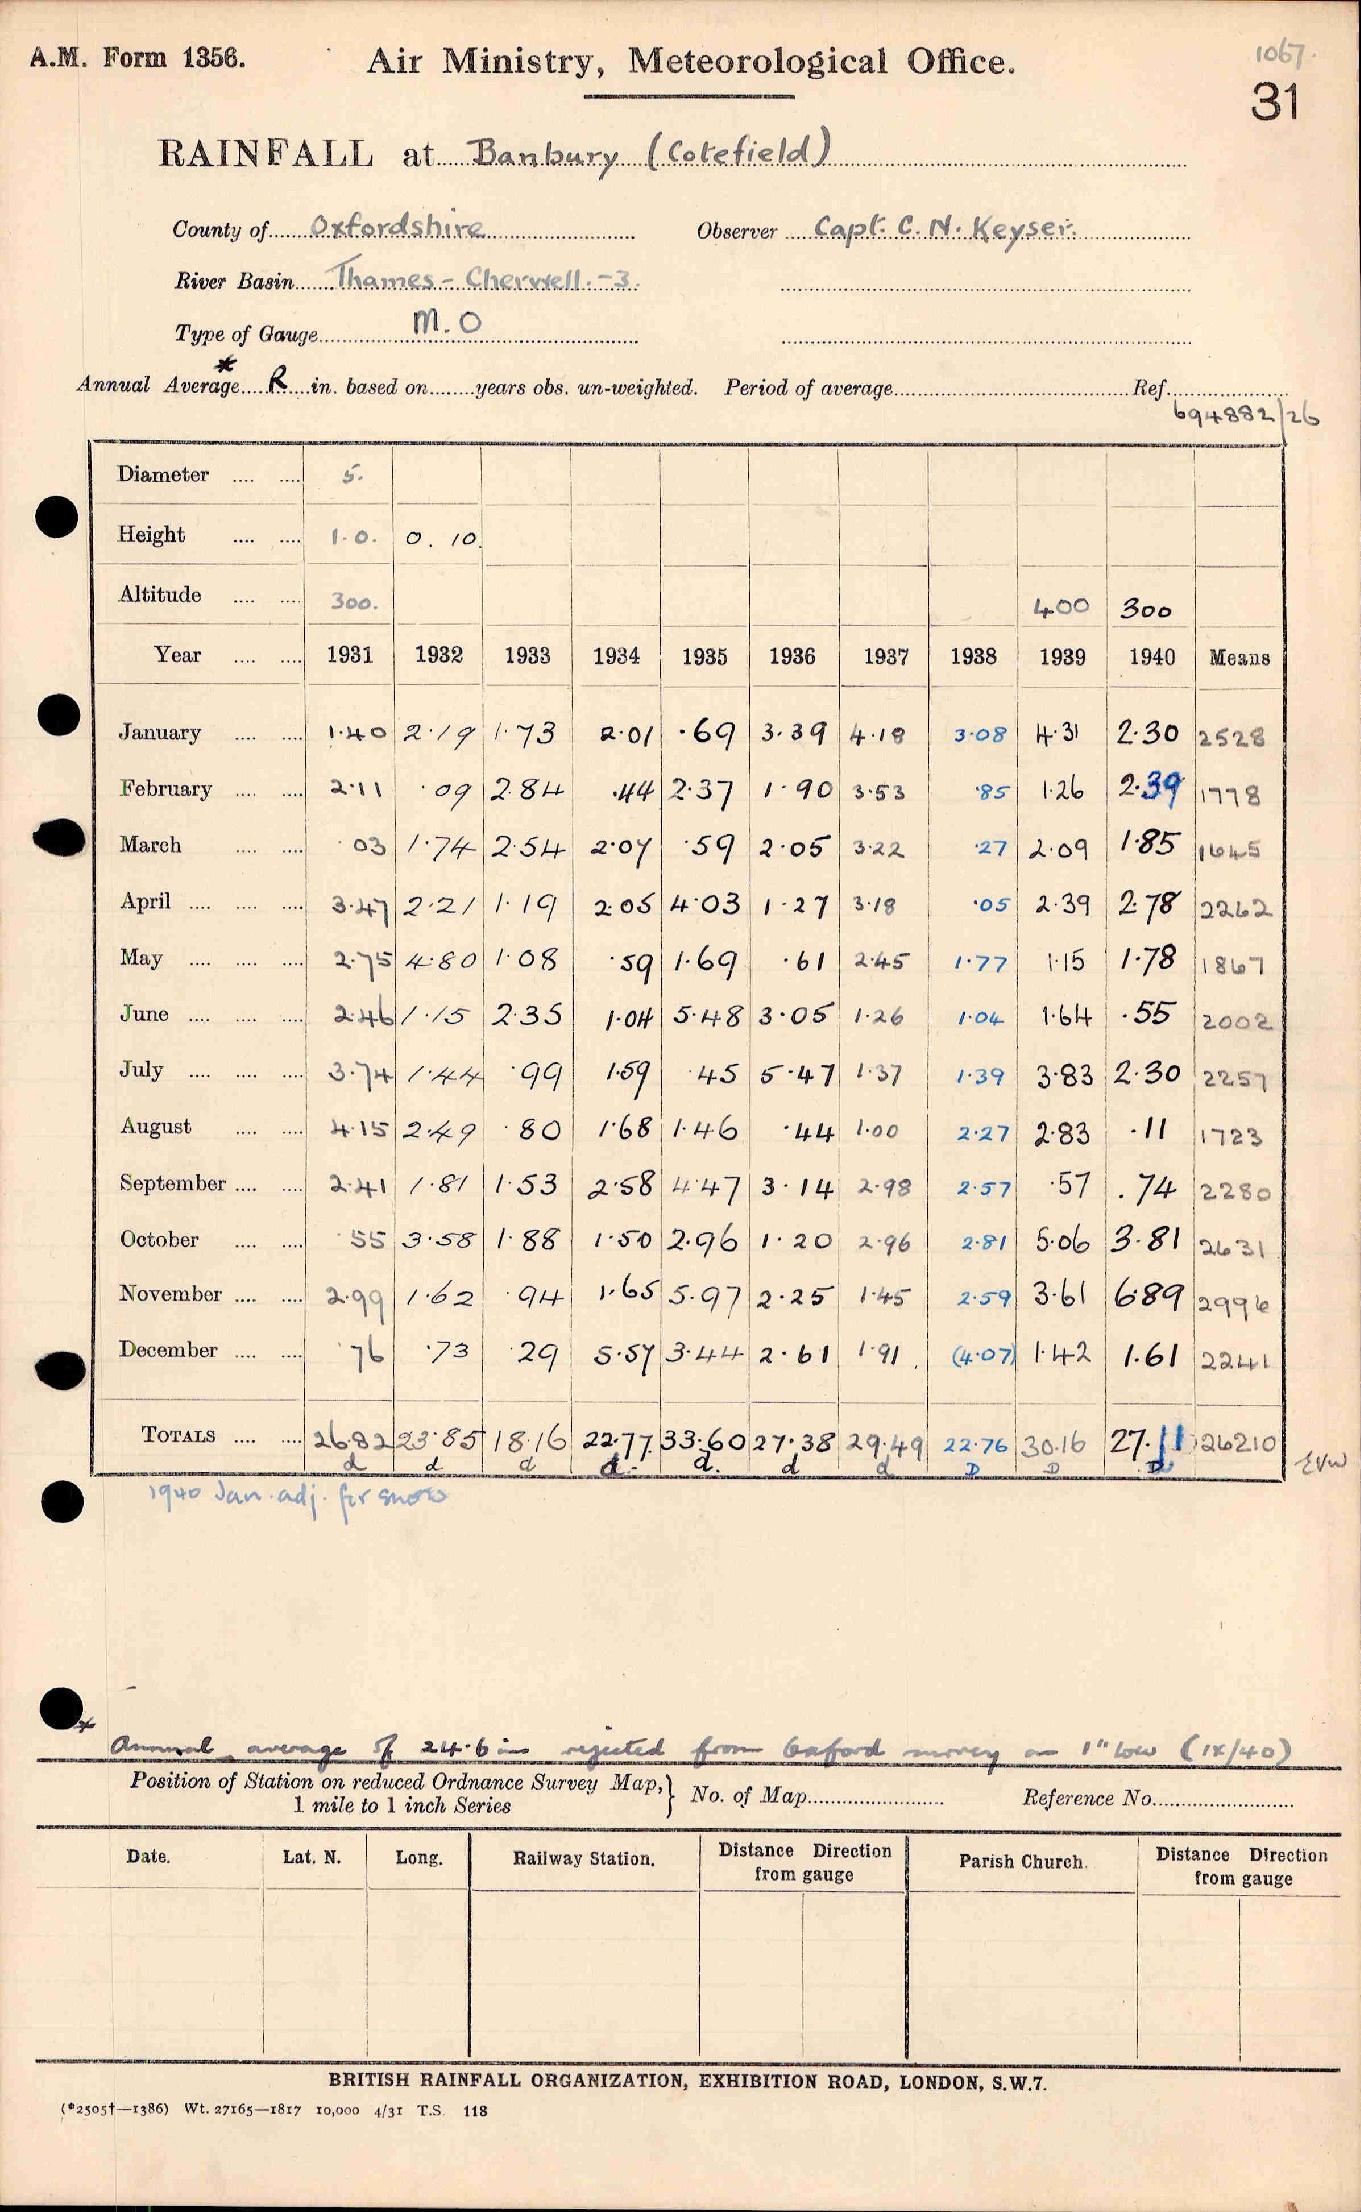 A.M. Form 1356. Air Ministry, Meteorological Office. 1067.
31
RAINFALL at Banbury (Cotefield)
County of Oxfordshire Observer Capt. C. N. Keyser.
River Basin Thames - Cherwell. - 3.
Type of Gauge M.O
*
Annual Average R in. based on ...... years obs. un-weighted. Period of average ...... Ref.
694882/26
Diameter 5.
Height 1.0. 0.10
Altitude 300. 400 300
Year 1931 1932 1933 1934 1935 1936 1937 1938 1939 1940 Means
January 1.40 2.19 1.73 2.01 .69 3.39 4.18 3.08 4.31 2.30 2528
February 2.11 .09 2.84 .44 2.37 1.90 3.53 .85 1.26 2.39 1778
March .03 1.74 2.54 2.07 .59 2.05 3.22 .27 2.09 1.85 1645
April 3.47 2.21 1.19 2.05 4.03 1.27 3.18 .05 2.39 2.78 2262
May 2.75 4.80 1.08 .59 1.69 .61 2.45 1.77 1.15 1.78 1867
June 2.46 1.15 2.35 1.04 5.48 3.05 1.26 1.04 1.64 .55 2002
July 3.74 1.44 .99 1.59 .45 5.47 1.37 1.39 3.83 2.30 2257
August 4.15 2.49 .80 1.68 1.46 .44 1.00 2.27 2.83 .11 1723
September 2.41 1.81 1.53 2.58 4.47 3.14 2.98 2.57 .57 .74 2280
October .55 3.58 1.88 1.50 2.96 1.20 2.96 2.81 5.06 3.81 2631
November 2.99 1.62 .94 1.65 5.97 2.25 1.45 2.59 3.61 6.89 2996
December .76 .73 .29 5.57 3.44 2.61 1.91 (4.07) 1.42 1.61 2241
TOTALS 26.82 23.85 18.16 22.77 33.60 27.38 29.49 22.76 30.16 27.11 26210
d d d d d d d D D D EVW
1940 Jan. adj. for snow
* Annual average of 24.6 ins rejected from Oxford survey as 1" low (ix/40)
Position of Station on reduced Ordnance Survey Map, } No. of Map Reference No.
1 mile to 1 inch Series
Date. Lat. N. Long. Railway Station. Distance Direction from gauge Parish Church. Distance Direction from gauge
BRITISH RAINFALL ORGANIZATION, EXHIBITION ROAD, LONDON, S.W.7.
(*2505†—1386) Wt. 27165—1817 10,000 4/31 T.S. 118